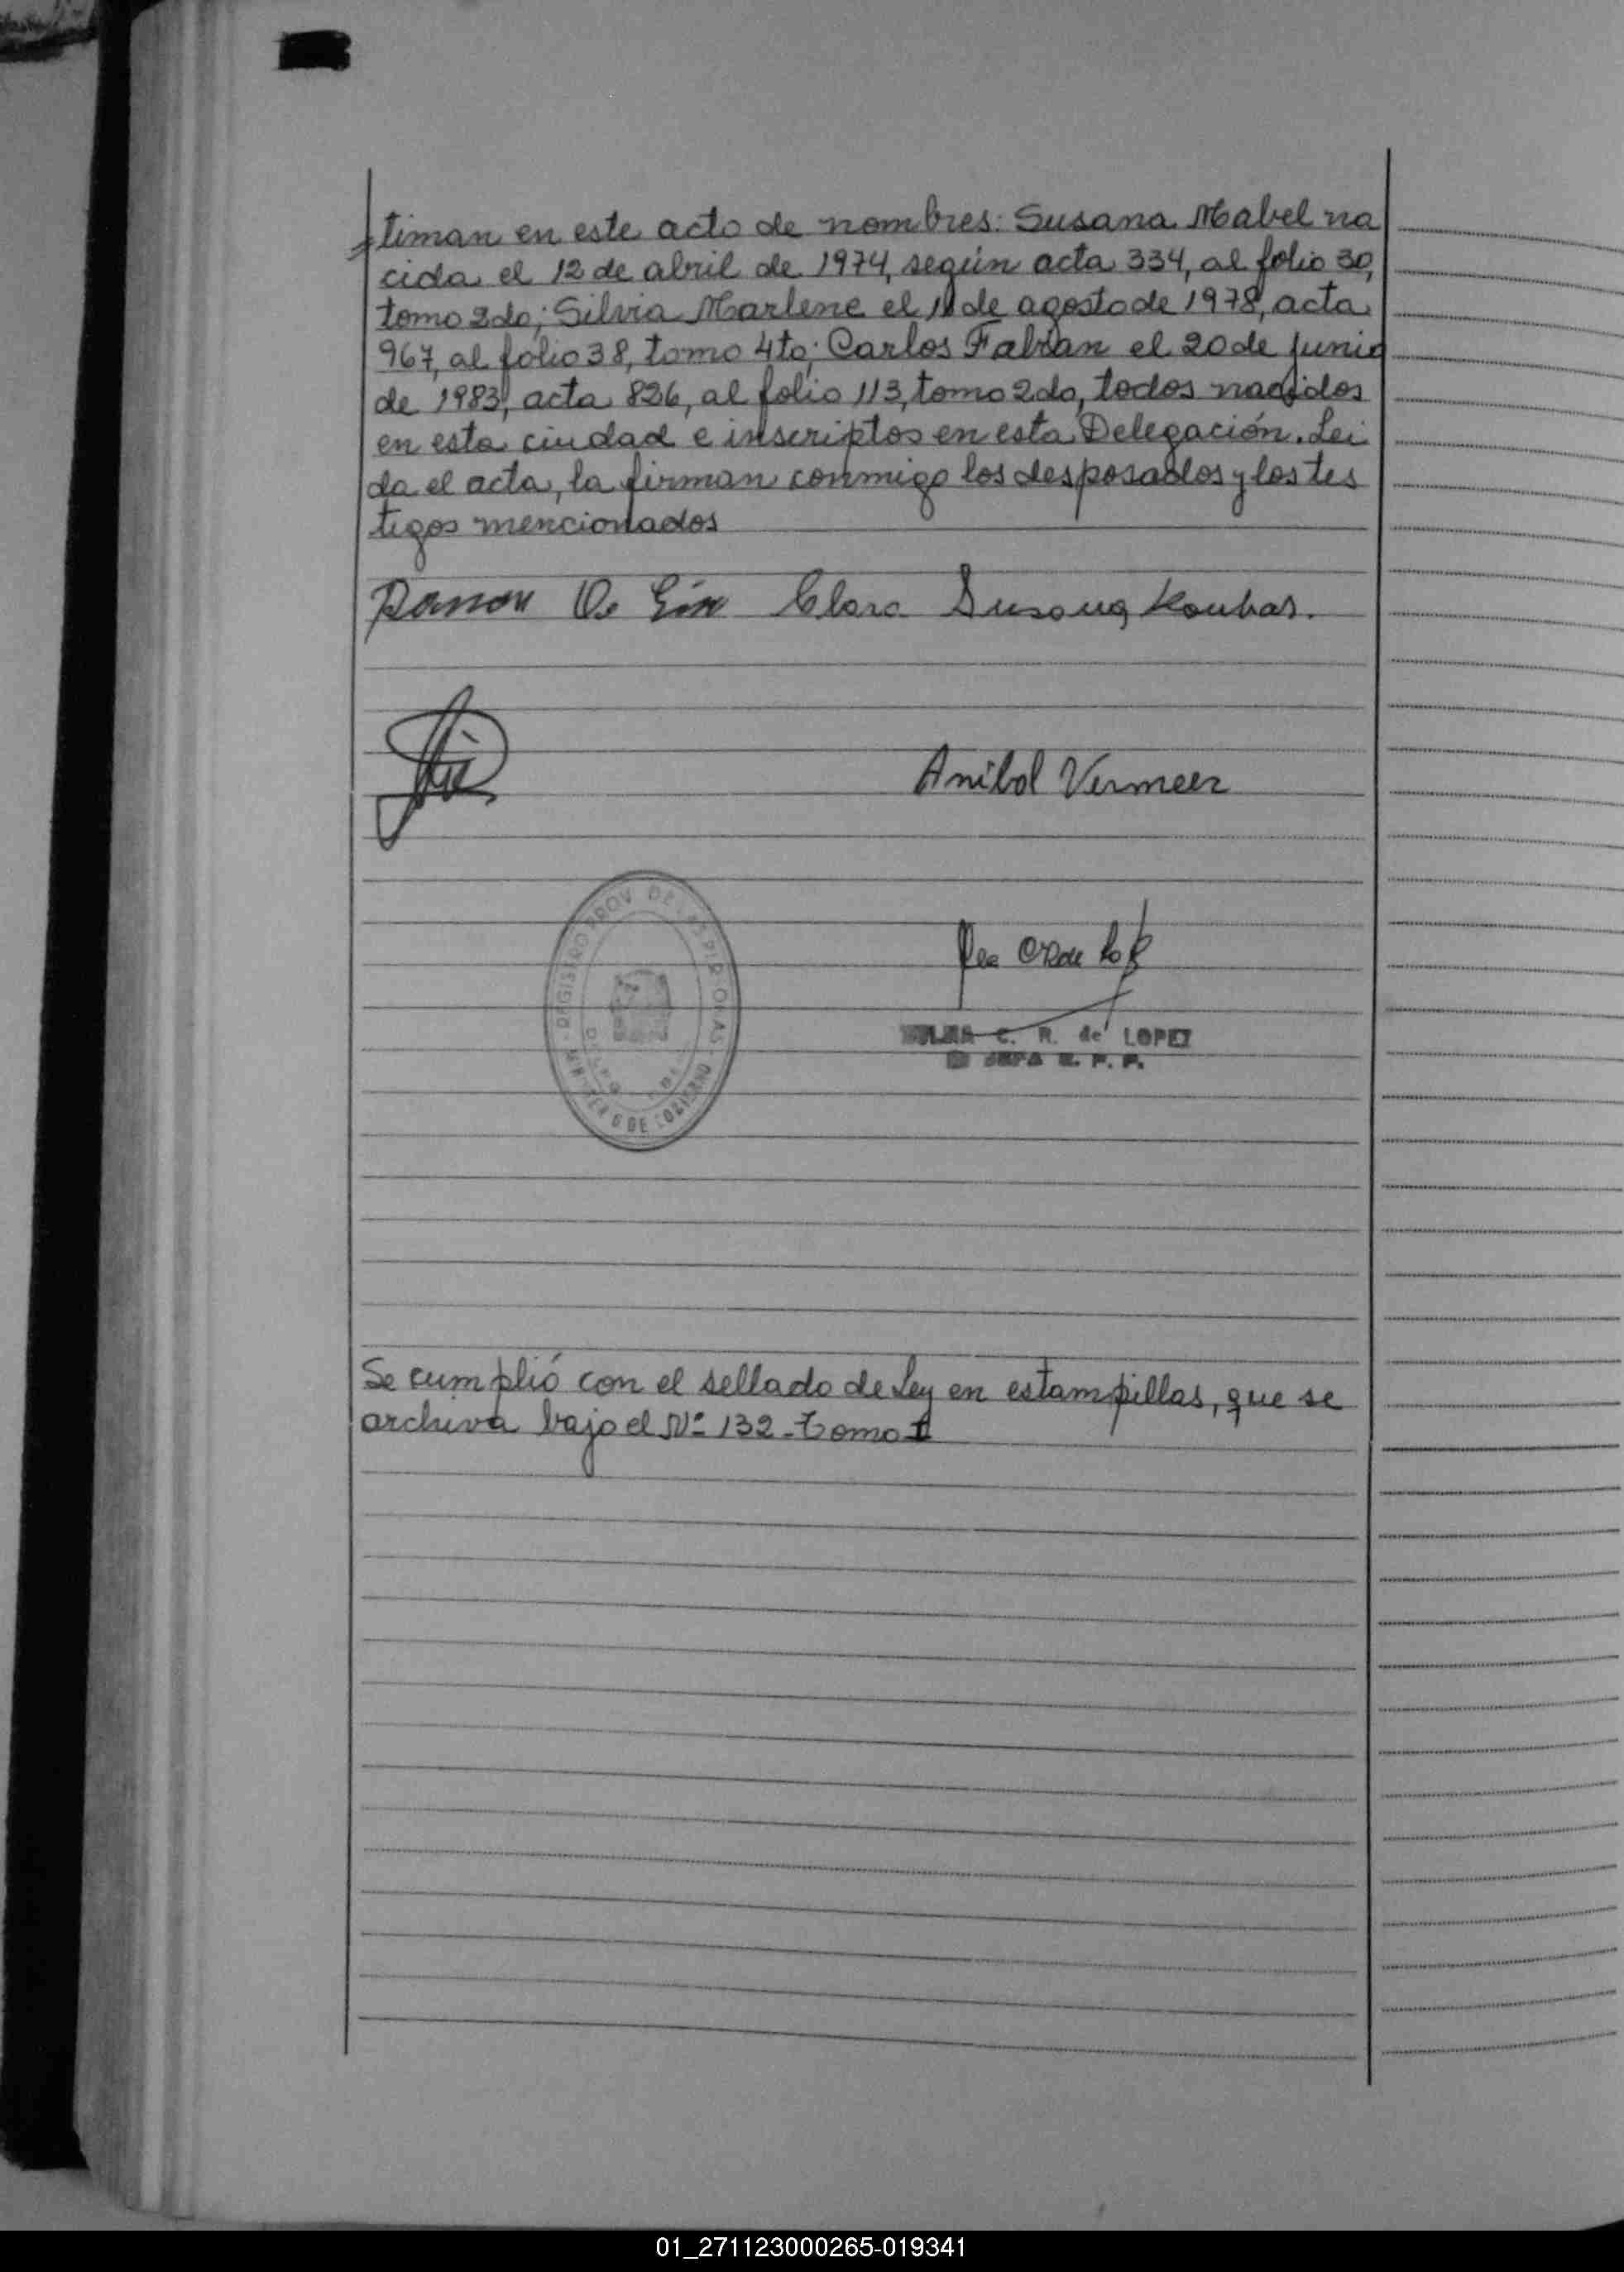 timan en este acto de nombres: Susana Mabel na
cida el 12 de abril de 1974, según acta 334, al folio 30,
tomo 2do; Silvia Marlene el 11 de agosto de 1978, acta
967, al folio 38, tomo 4to; Carlos Fabian el 20 de junio
de 1983, acta 826, al folio 113, tomo 2do, todos nacidos
en esta ciudad e inscriptos en esta Delegación. Lei
da el acta, la firman conmigo los desposados y los tes
tigos mencionados
Ramon Clara Susana
Anibal Vermeer
REGISTRO PROV DE LAS PERSONAS
DE GOBIERNO
C. R. de LOPEZ
JEFA
Se cumplió con el sellado de Ley en estampillas, que se
archiva bajo el Nº 132 - Tomo I
01_271123000265-019341